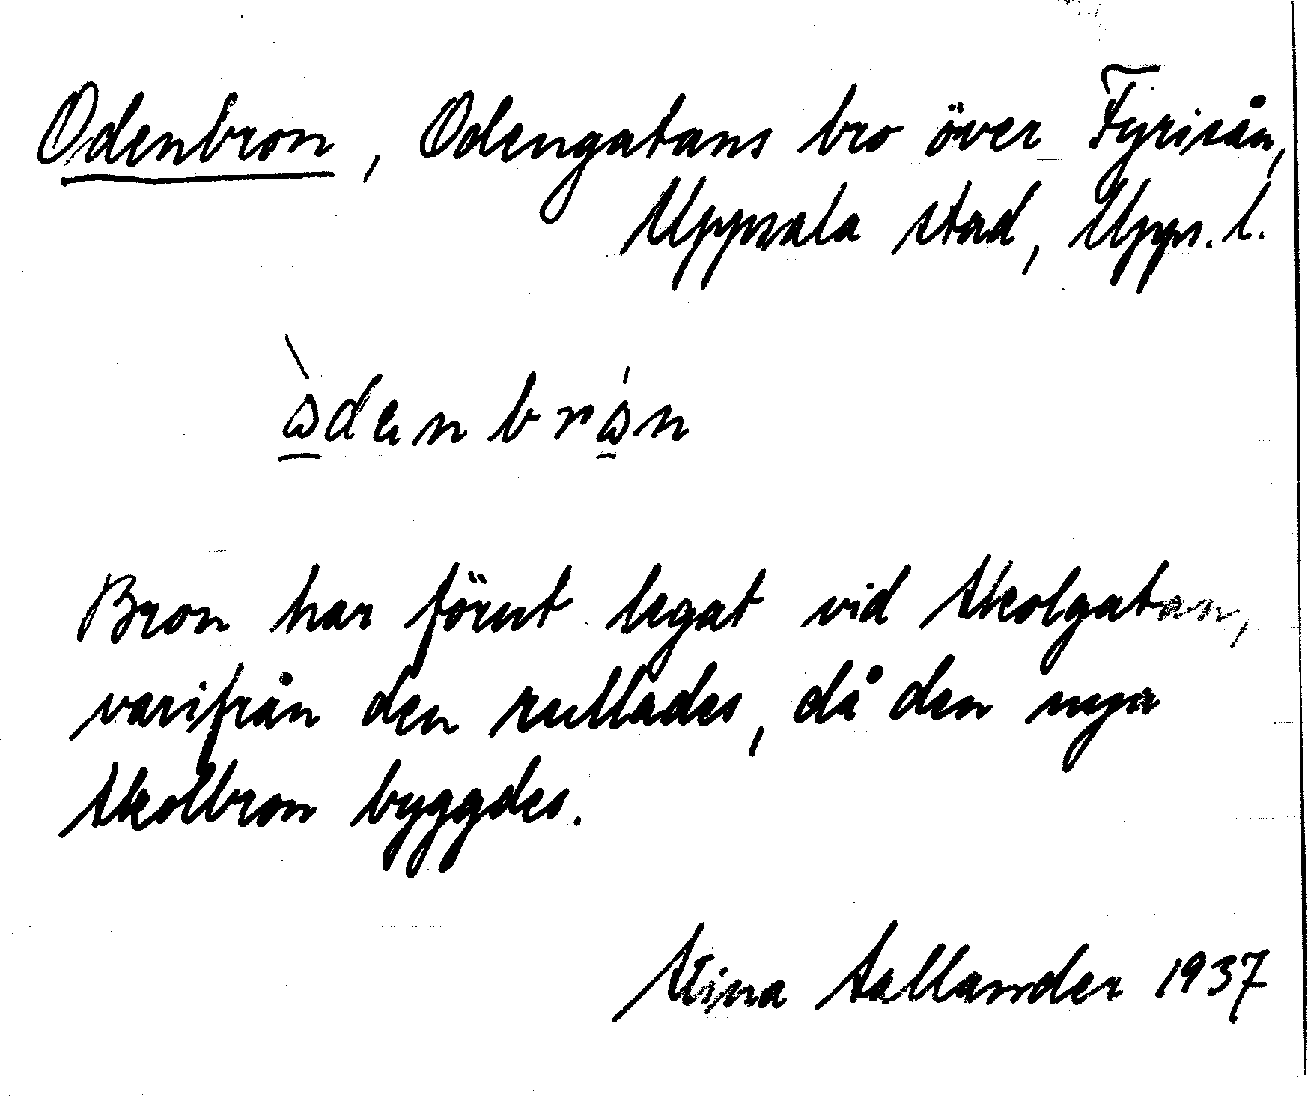 Odenbron, Odengatans bro över Fyrisån,
Uppsala stad, Upps. l.
Bron har förut legat vid Skolgatan,
varifrån den rullades, då den nya
Skolbron byggdes.
Stina Sallander 1937